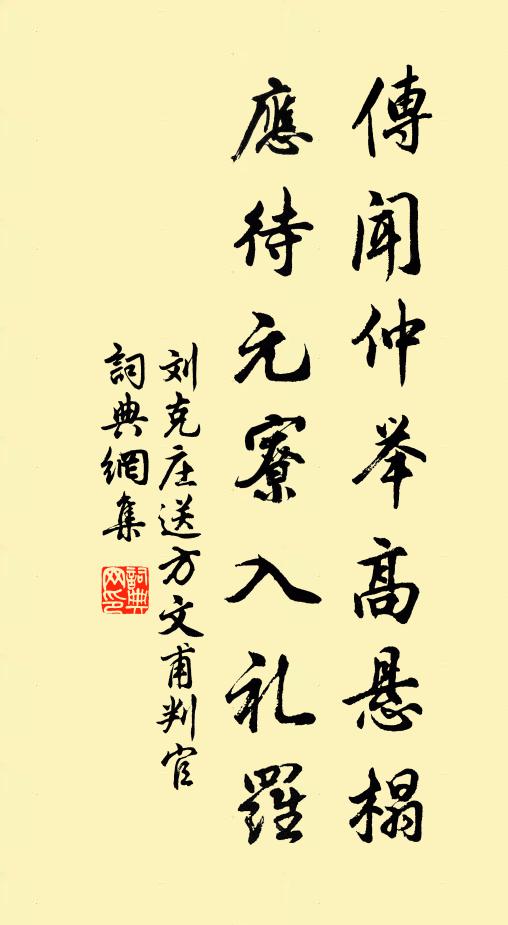 傳闻仲举高悬榻
應待元寮入礼羅
刘克庄送方文甫判官
詞典網集
詞典网印